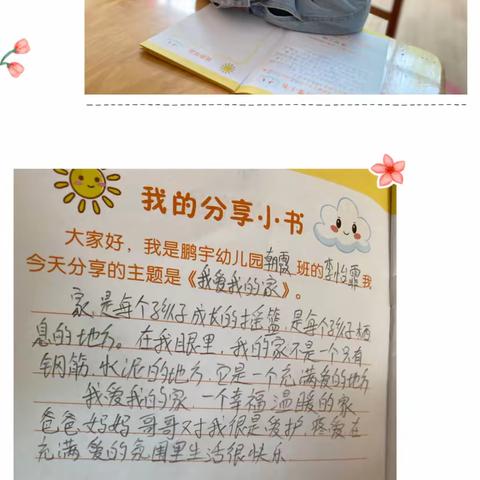 我的分享小书
大家好，我是鹏宇幼儿园朝霞班的李怡霏我
今天分享的主题是《我爱我的家》。
家,是每个孩子成长的摇篮,是每个孩子栖
息的地方。在我眼里，我的家不是一个只有
钢筋、水泥的地方,它是一个充满爱的地方
我爱我的家 一个幸福温暖的家
爸爸妈妈哥哥对我很是爱护,疼爱在
充满爱的氛围里生活很快乐